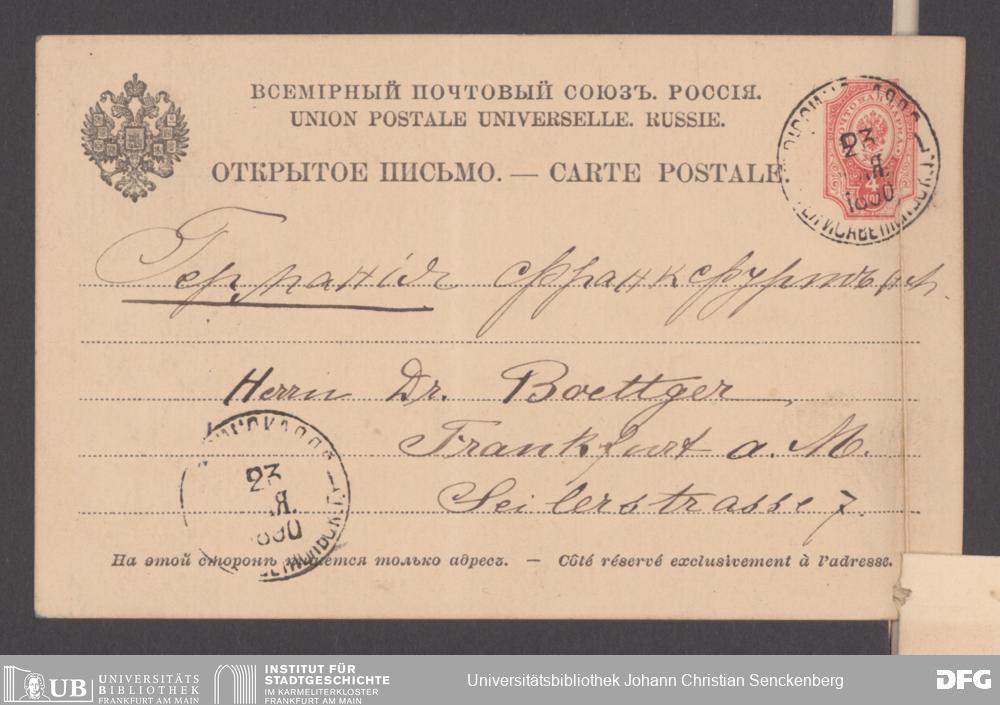 ВСЕМІРНЫЙ ПОЧТОВЫЙ СОЮЗЪ. РОССІЯ.
UNION POSTALE UNIVERSELLE. RUSSIE.
ОТКРЫТОЕ ПИСЬМО. — CARTE POSTALE.
23
1890
4
Германія Франкфуртъ н/М.
Herrn Dr. Boettger
Frankfurt a. M.
Seilerstrasse 7.
23
1890
На этой сторонѣ пишется только адресъ. — Côté réservé exclusivement à l'adresse.
UB UNIVERSITÄTS BIBLIOTHEK FRANKFURT AM MAIN
INSTITUT FÜR STADTGESCHICHTE IM KARMELITERKLOSTER FRANKFURT AM MAIN
Universitätsbibliothek Johann Christian Senckenberg
DFG